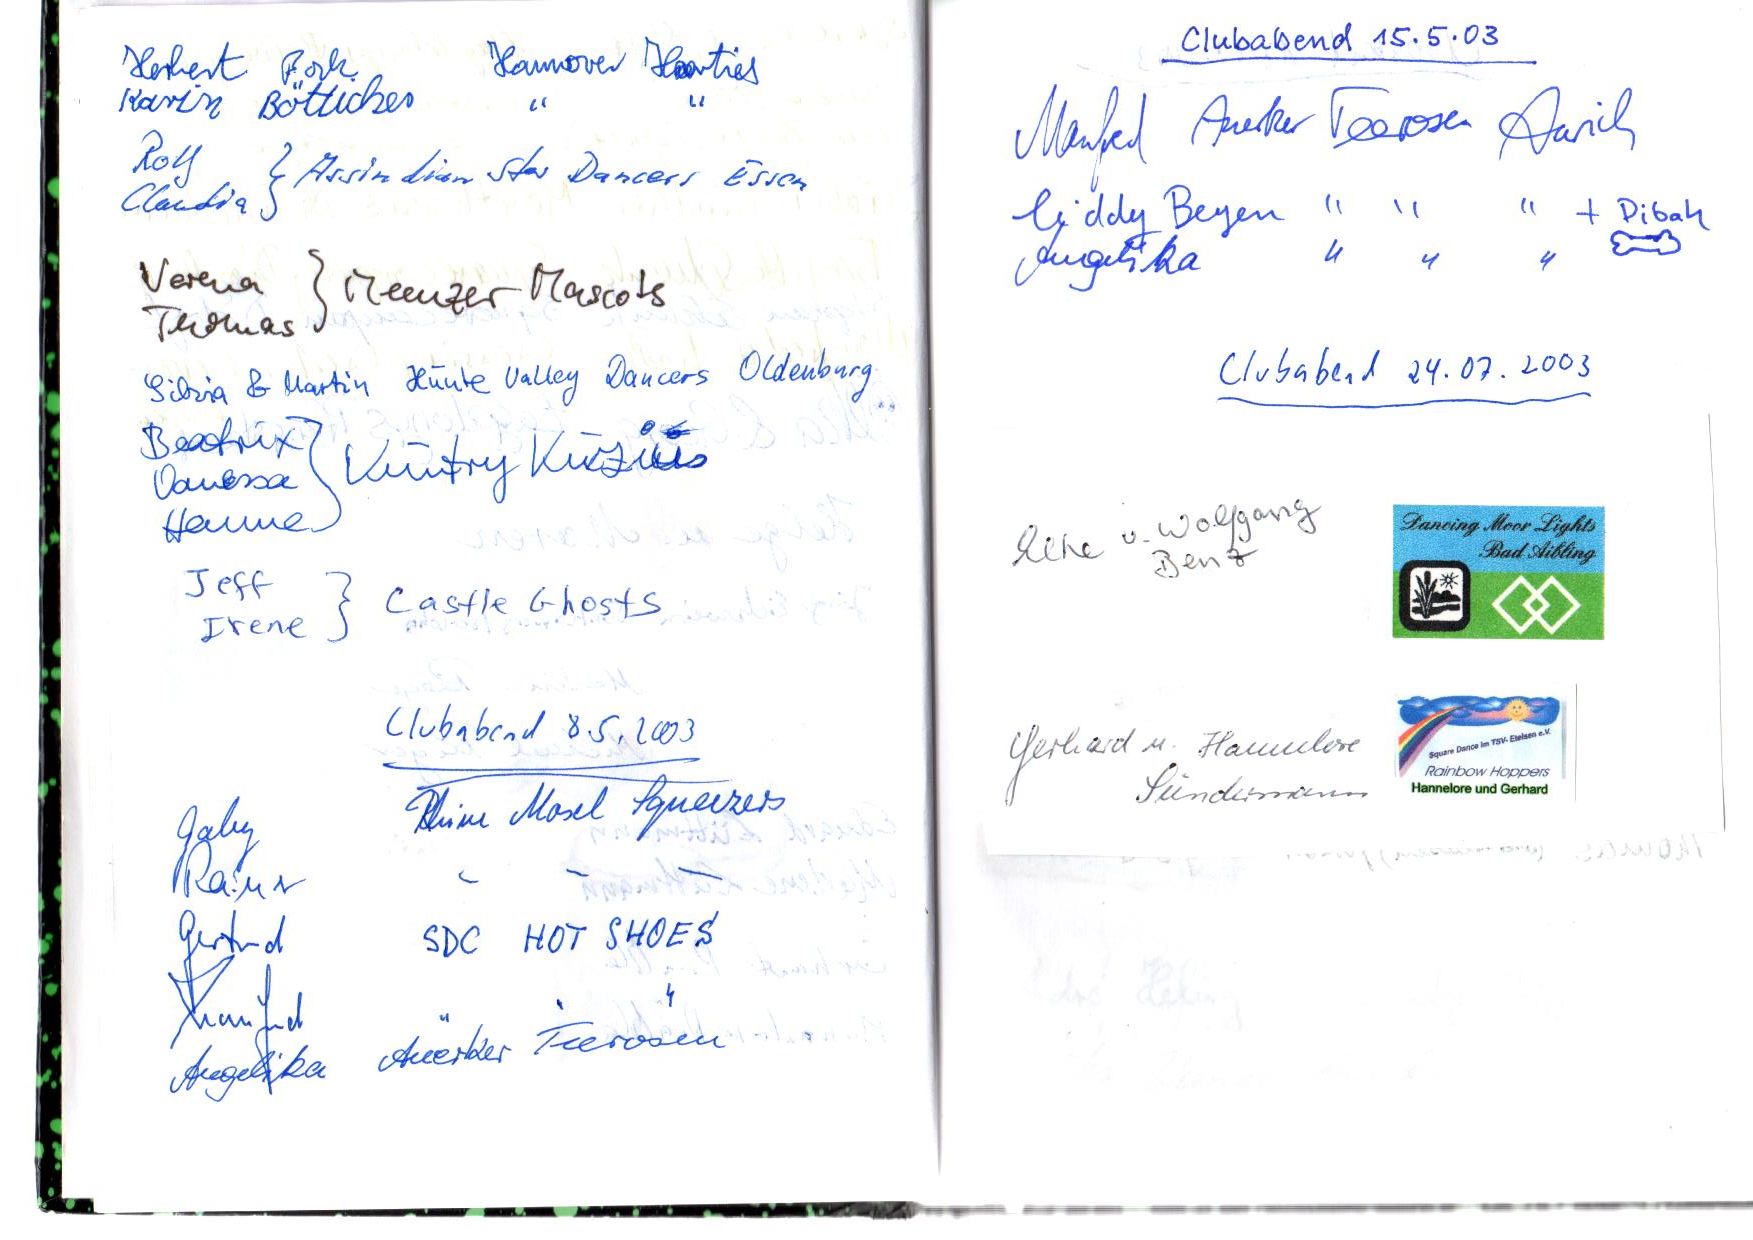 Herbert Hannover Hearties
Karin Bötticher " "
Rolf
Claudia } Assindian Star Dancers Essen
Verena
Thomas } Meenzer Mascots
Silvia & Martin Hunte Valley Dancers Oldenburg
Beatrix
Vanessa
Hanne } Küntry Küzins
Jeff
Irene } Castle Ghosts
Clubabend 8.5.2003
Gaby Rhine Mosel Squeezers
Rainer " " "
Gertrud SDC HOT SHOES
Manfred " " "
Angelika Auerker Teerosen
Clubabend 15.5.03
Manfred Auerker Teerosen Aurich
Giddy Beyen " " " + Dibah
Angelika " " "
Clubabend 24.07.2003
u. Wolfgang
Benz
Dancing Moor Lights
Bad Aibling
Gerhard u. Hannelore
Sündermann
Square Dance im TSV- Etelsen e.V.
Rainbow Hoppers
Hannelore und Gerhard